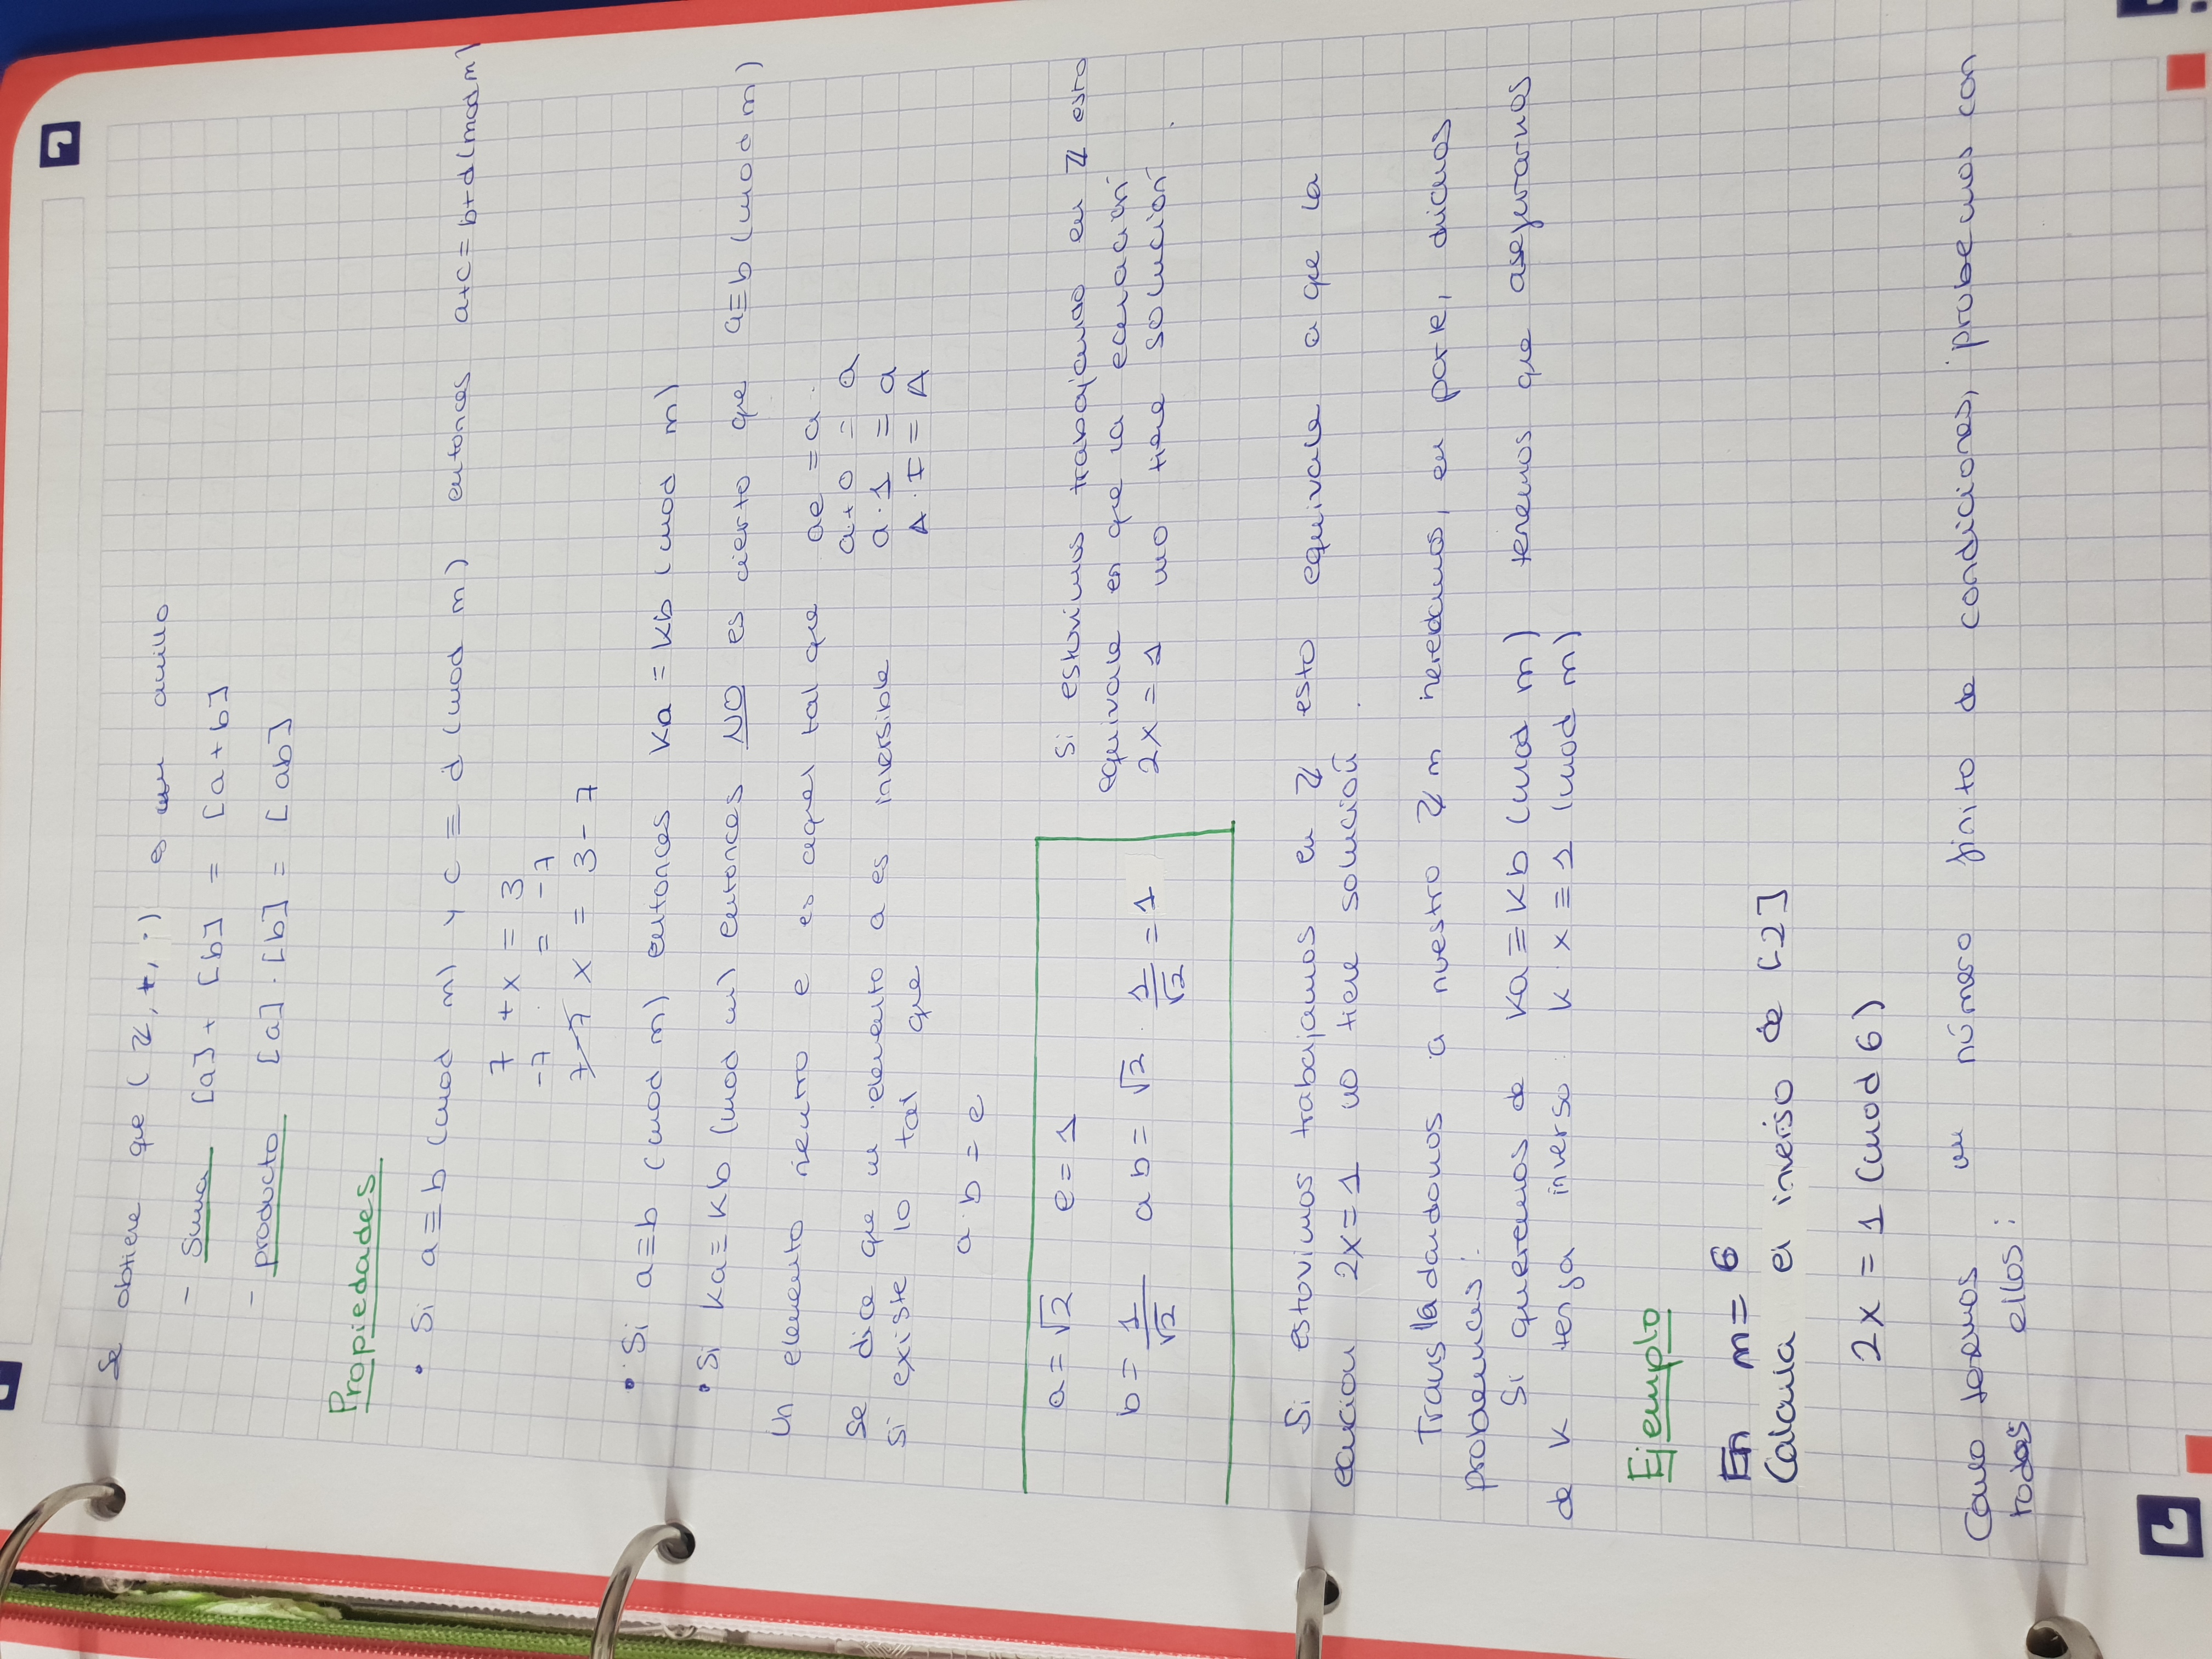 Se obtiene que (ℤ, +, ·) es un anillo
- Suma [a] + [b] = [a+b]
- producto [a]·[b] = [ab]
Propiedades
• Si a≡b (mod m) y c ≡ d (mod m) entonces a+c≡b+d (mod m)
7 + x = 3
-7 = -7
7-7 x = 3-7
• Si a≡b (mod m) entonces ka ≡ kb (mod m)
• Si ka≡kb (mod m) entonces NO es cierto que a≡b (mod m)
Un elemento neutro e es aquel tal que ae = a.
a+0 = a
Se dice que un elemento a es inversible a·1 = a
si existe lo tal que A·I = A
a·b = e
a = √2 e = 1
b = 1/√2 ab = √2 · 1/√2 = 1
Si estuvimos trabajando en ℤ esto
equivale en que la ecuación
2x = 1 no tiene solución
Si estuvimos trabajamos en ℤ esto equivale a que la
ecuacion 2x=1 no tiene solución.
Translladandonos a nuestro ℤm heredamos, en parte, dichos
problemas:
Si queremos de ka≡kb (mod m) tenemos que asegurarnos
de k tenga inverso: k·x ≡ 1 (mod m)
Ejemplo
En m = 6
Calcula el inverso de [2]
2x = 1 (mod 6)
Como tenemos un número finito de condiciones, probemos con
todos ellos: